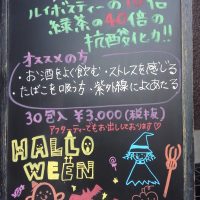 ルイボスティーの
緑茶の40倍の
抗酸化力!!
オススメの方
・お酒をよく飲む・ストレスを感じる
・たばこを吸う方・紫外線によくあたる
30包入 ¥3,000(税抜)
アフターティーでもお出ししております♡
HALLO
WEEN